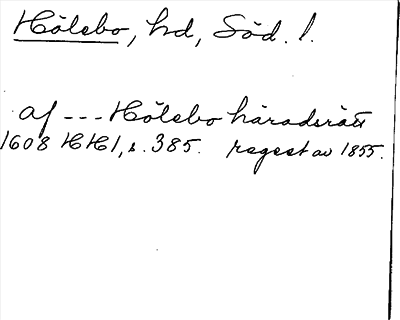 Hölebo, hd, Söd. l.
af --- Hölebo häradsrätt
1608 HH1, s. 385. regest av 1855.